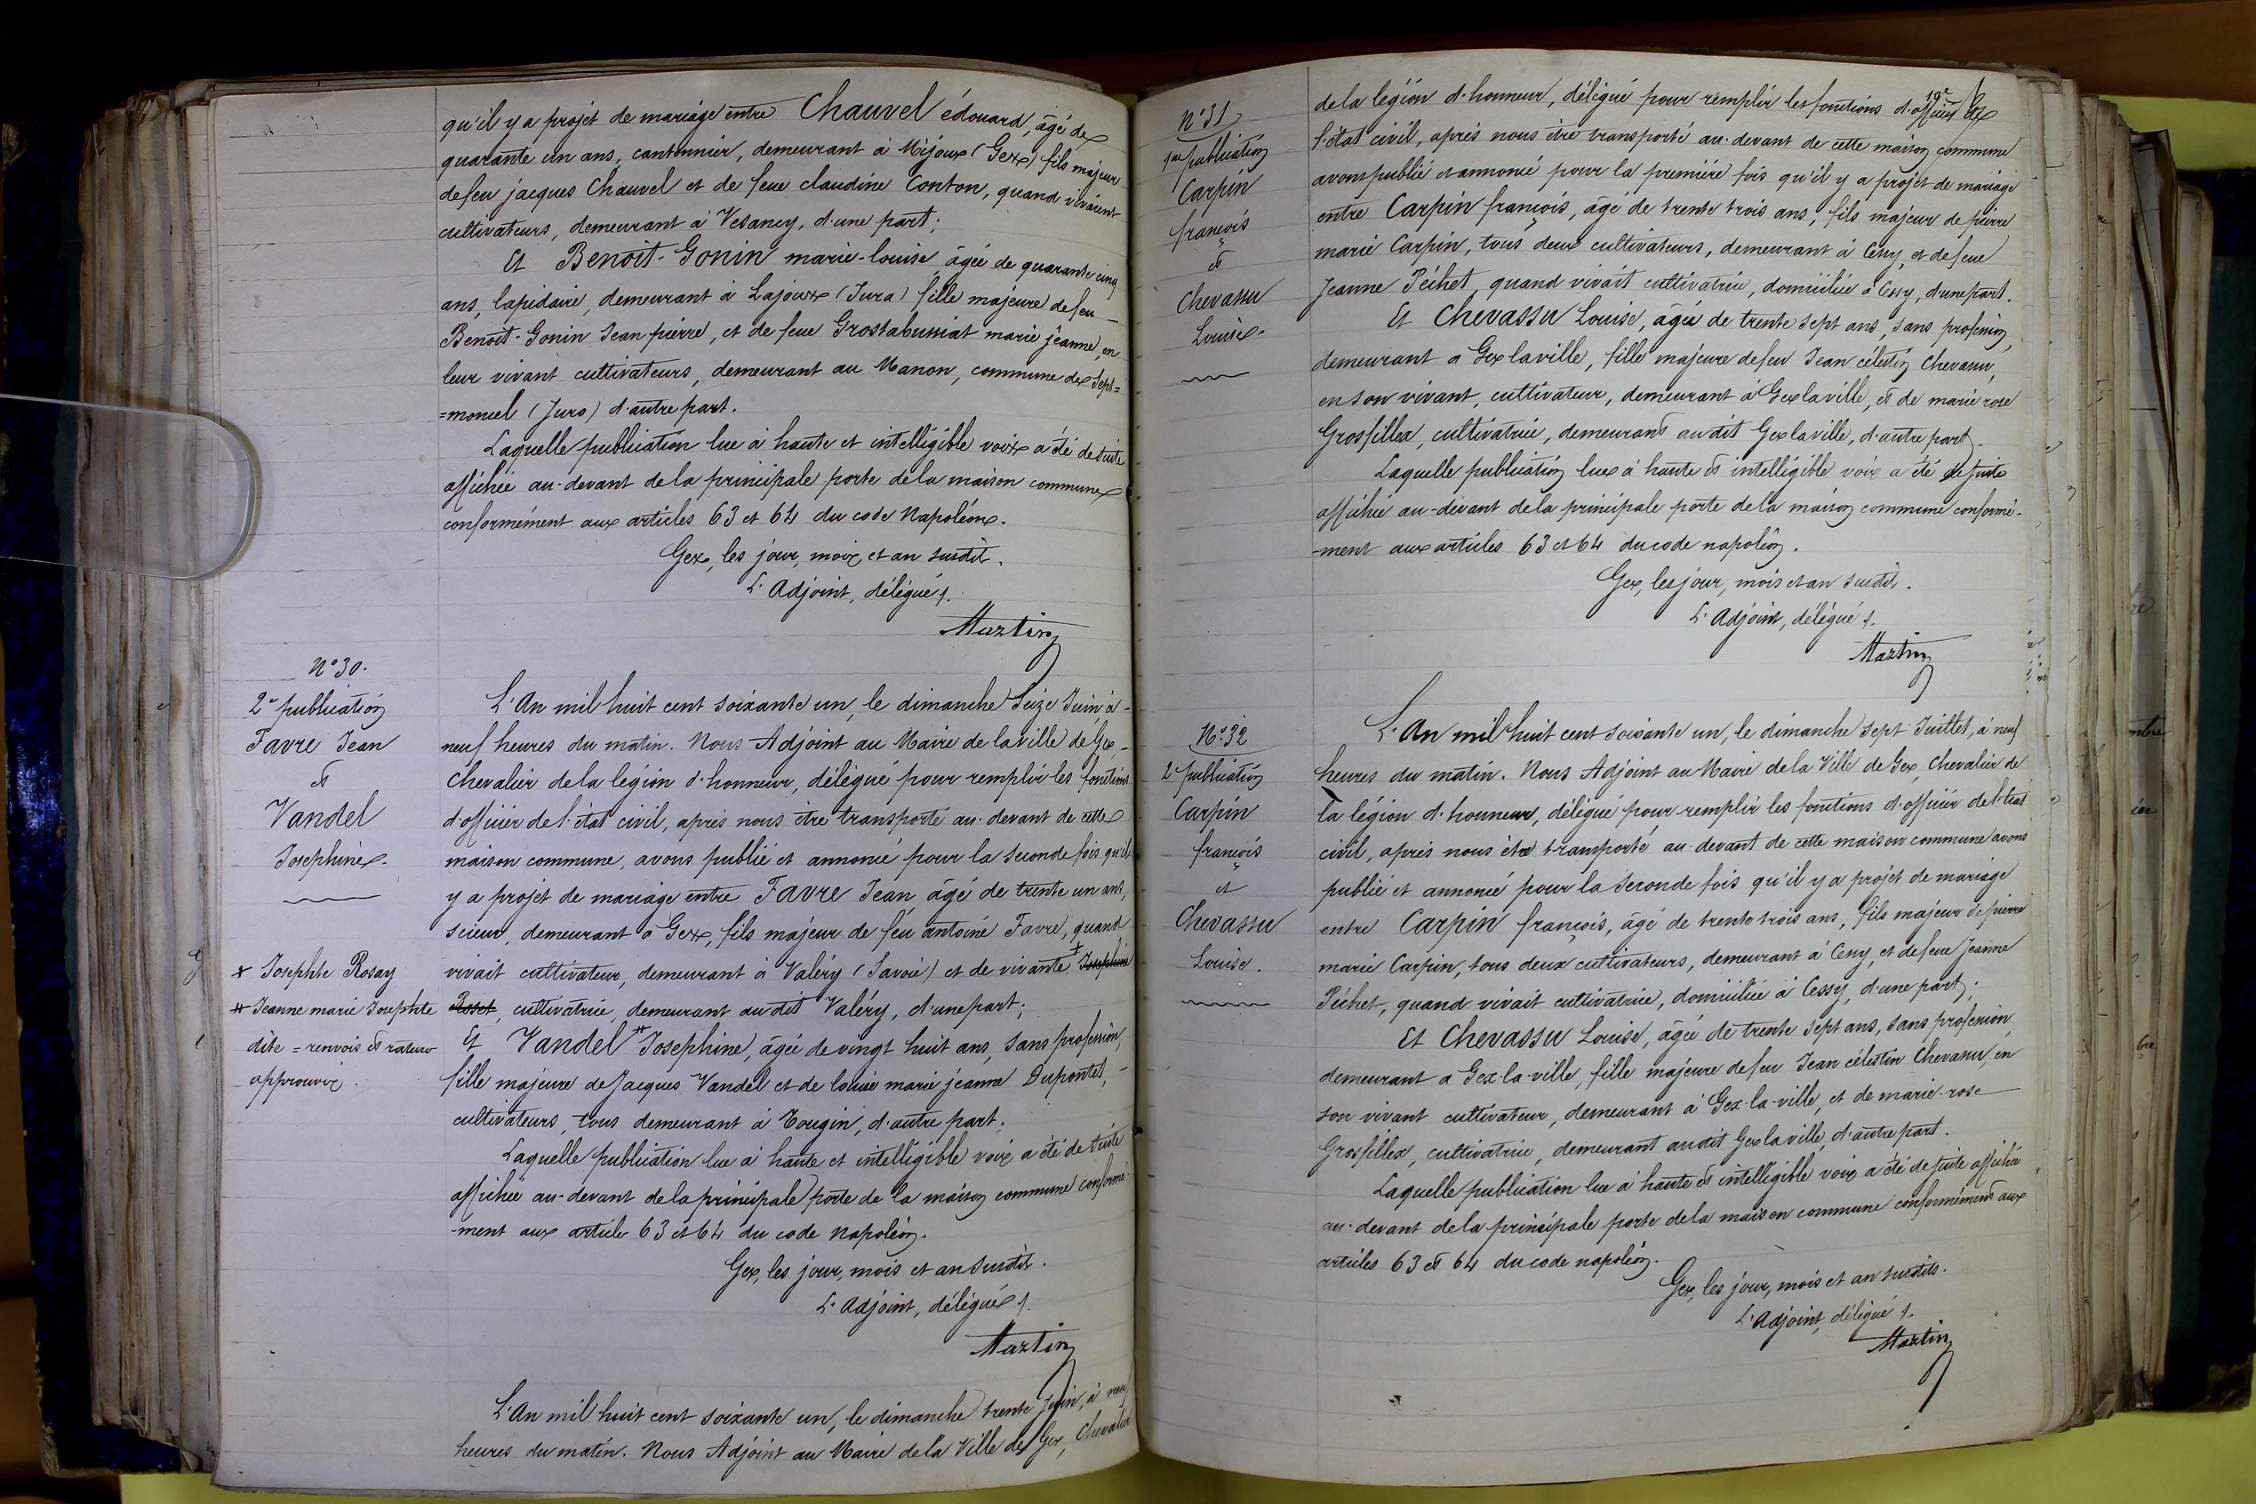 qu'il y a projet de mariage entre Chauvel édouard, âgé de
quarante un ans, cantonnier, demeurant à Mijoux (Gex) fils majeur
de feu jacques Chauvel et de feue claudine Conton, quand vivaient
cultivateurs, demeurant à Vesancy, d'une part;
Et Benoit-Gonin marie-louise âgée de quarante cinq
ans, lapidaire, demeurant à Lajoux (Jura) fille majeure de feu
Benoit-Gonin Jean pierre, et de feue Grostabussiat marie jeanne, en
leur vivant cultivateurs, demeurant au Manon, commune de Sept=
=moncel (Jura) d'autre part.
Laquelle publication lue à haute et intelligible voix a été de suite
affichée au-devant de la principale porte de la maison commune
conformément aux articles 63 et 64 du code Napoléon.
Gex, les jour, mois et an susdit.
L'Adjoint, délégué /.
Martin
N° 30.
2e publication
Favre Jean
et
Vandel
Josephine.
L'An mil huit cent soixante un, le dimanche Seize Juin, à
neuf heures du matin. Nous Adjoint au Maire de la ville de Gex
Chevalier de la légion d'honneur, délégué pour remplir les fonctions
d'officier de l'état civil, après nous être transporté au-devant de cette
maison commune, avons publié et annoncé pour la seconde fois qu'il
y a projet de mariage entre Favre Jean âgé de trente un ans,
scieur, demeurant à Gex, fils majeur de feu antoine Favre, quand
vivait cultivateur, demeurant à Valéry (Savoie) et de vivante + Josephine
Roset, cultivatrice, demeurant au dit Valéry, d'une part;
Et Vandel # Josephine, âgée de vingt huit ans, sans profession,
fille majeure de Jacques Vandel et de louise marie jeanne Dupontet,
cultivateurs, tous demeurant à Tougin, d'autre part.
Laquelle publication lue à haute et intelligible voix a été de suite
affichée au-devant de la principale porte de la maison commune conformé-
-ment aux article 63 et 64 du code napoléon.
Gex, les jour, mois et an susdit.
L'Adjoint, délégué /.
Martin
+ Josephte Rosay
# Jeanne marie Josephte
dite = renvois et rature
approuvée.
L'An mil huit cent soixante un, le dimanche trente Juin, à neuf
heures du matin. Nous Adjoint au Maire de la Ville de Gex, Chevalier
19e
N° 31
1re publication
Carpin
françois
et
Chevassu
Louise.
de la légion d'honneur, délégué pour remplir les fonctions d'officier de
l'état civil, après nous être transporté au-devant de cette maison commune
avons publié et annoncé pour la première fois qu'il y a projet de mariage
entre Carpin françois, âgé de trente trois ans, fils majeur de pierre
marie Carpin, tous deux cultivateurs, demeurant à Cessy, et de feue
Jeanne Péchet, quand vivait cultivatrice, domiciliée à Cessy, d'une part.
Et Chevassu Louise, âgée de trente sept ans, sans profession,
demeurant à Gex la ville, fille majeure de feu Jean célestin Chevassu,
en son vivant, cultivateur, demeurant à Gex la ville, et de marie rose
Grosfillex, cultivatrice, demeurant au dit Gex la ville, d'autre part.
Laquelle publication lue à haute et intelligible voix a été de suite
affichée au-devant de la principale porte de la maison commune conformé-
-ment aux articles 63 et 64 du code napoléon.
Gex, les jour, mois et an susdit.
L'Adjoint, délégué /.
Martin
N° 32
2e publication
Carpin
françois
et
Chevassu
Louise.
L'An mil huit cent soixante un, le dimanche sept Juillet, à neuf
heures du matin. Nous Adjoint au Maire de la Ville de Gex, Chevalier de
la légion d'honneur, délégué pour remplir les fonctions d'officier de l'état
civil, après nous être transporté au-devant de cette maison commune avons
publié et annoncé pour la seconde fois qu'il y a projet de mariage
entre Carpin françois, âgé de trente trois ans, fils majeur de pierre
marie Carpin, tous deux cultivateurs, demeurant à Cessy, et de feue Jeanne
Péchet, quand vivait cultivatrice, domiciliée à Cessy, d'une part;
Et Chevassu Louise, âgée de trente sept ans, sans profession
demeurant à Gex-la-ville, fille majeure de feu Jean célestin Chevassu, en
son vivant cultivateur, demeurant à Gex-la-ville, et de marie-rose
Grosfillex, cultivatrice, demeurant au dit Gex la ville, d'autre part.
Laquelle publication lue à haute et intelligible voix a été de suite affichée
au-devant de la principale porte de la maison commune conformément aux
articles 63 et 64 du code napoléon.
Gex, les jour, mois et an susdits.
L'Adjoint, délégué /.
Martin